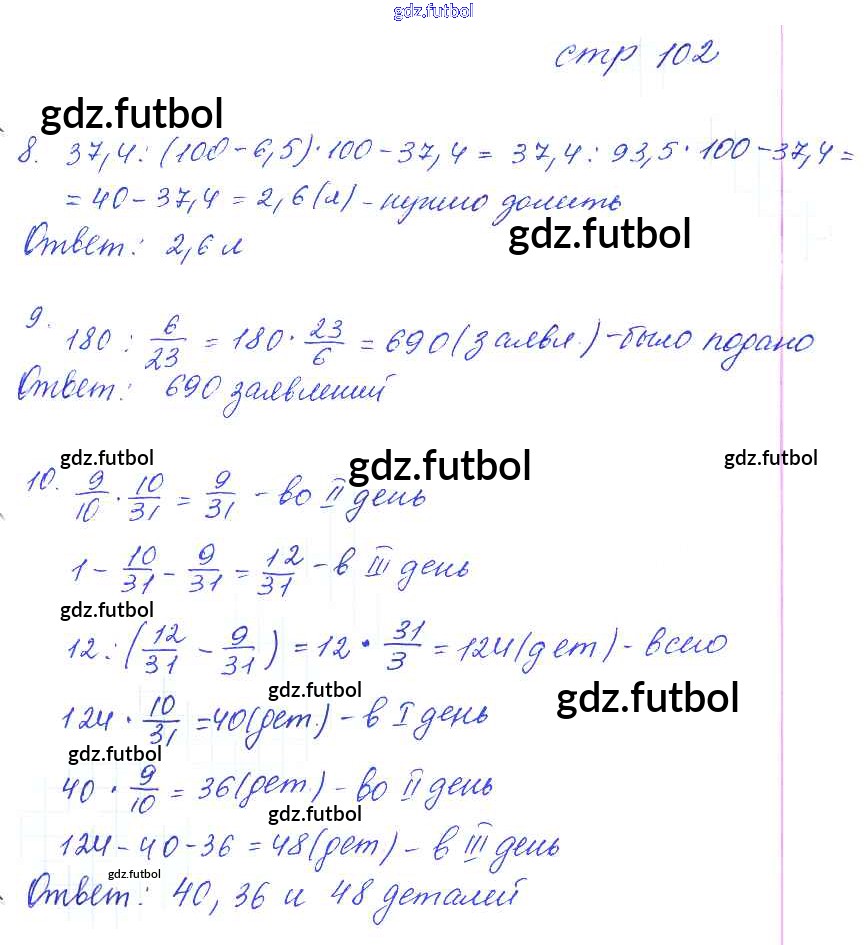 gdz.futbol
стр 102
gdz.futbol
8. 37,4 : (100 - 6,5) · 100 - 37,4 = 37,4 : 93,5 · 100 - 37,4 =
= 40 - 37,4 = 2,6 (л) - нужно долить
gdz.futbol
Ответ: 2,6 л
9. 180 : 6/23 = 180 · 23/6 = 690 (заявл.) - было подано
Ответ: 690 заявлений
gdz.futbol gdz.futbol gdz.futbol
10. 9/10 · 10/31 = 9/31 - во II день
1 - 10/31 - 9/31 = 12/31 - в III день
gdz.futbol
12 : (12/31 - 9/31) = 12 · 31/3 = 124 (дет) - всего
gdz.futbol gdz.futbol
124 · 10/31 = 40 (дет.) - в I день
gdz.futbol
40 · 9/10 = 36 (дет.) - во II день
gdz.futbol
124 - 40 - 36 = 48 (дет) - в III день
gdz.futbol
Ответ: 40, 36 и 48 деталей